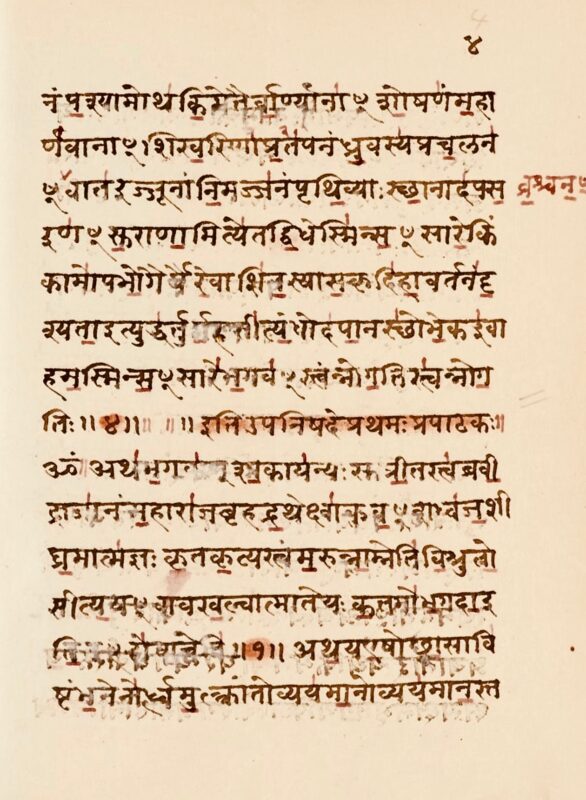 ४
नं पश्यामोथ किमेतैर्वाण्यानाꣳ शोषणं महा
र्णवानाꣳ शिखरिणां प्रपतनं ध्रुवस्य प्रचलन
ꣳ वातरज्जूनां निमज्जनं पृथिव्याः स्थानादपस व्रश्चनꣳ
रणꣳ सुराणामित्येतद्विधेस्मिन्सꣳसारे किं
कामोपभोगैर्यैरेवाशितस्यासकृदिहावर्तनं दृ
श्यता इत्युद्धर्तुमर्हसीत्यंधोदपानस्थो भेक इवा
हमस्मिन्सꣳसारे भगवꣳस्त्वन्नो गतिस्त्वन्नो ग
तिः ॥४॥ ॥ इति उपनिषदे प्रथमः प्रपाठकः॥
ॐ अथ भगवान् शाकायन्यः सुप्रीतस्त्वब्रवी
द्राजानं महाराज बृहद्रथेक्ष्वाकुवꣳशध्वज शी
घ्रमात्मज्ञः कृतकृत्यस्त्वं मरुन्नाम्नेति विश्रुतो
सीत्ययꣳ वाव खल्वात्मा ते यः कतमो भगवा इ
ति ॥१॥ अथ य एषोच्छ्वासावि
ष्टंभनेनोर्ध्वमुत्क्रांतो व्ययमानोव्ययमानस्त